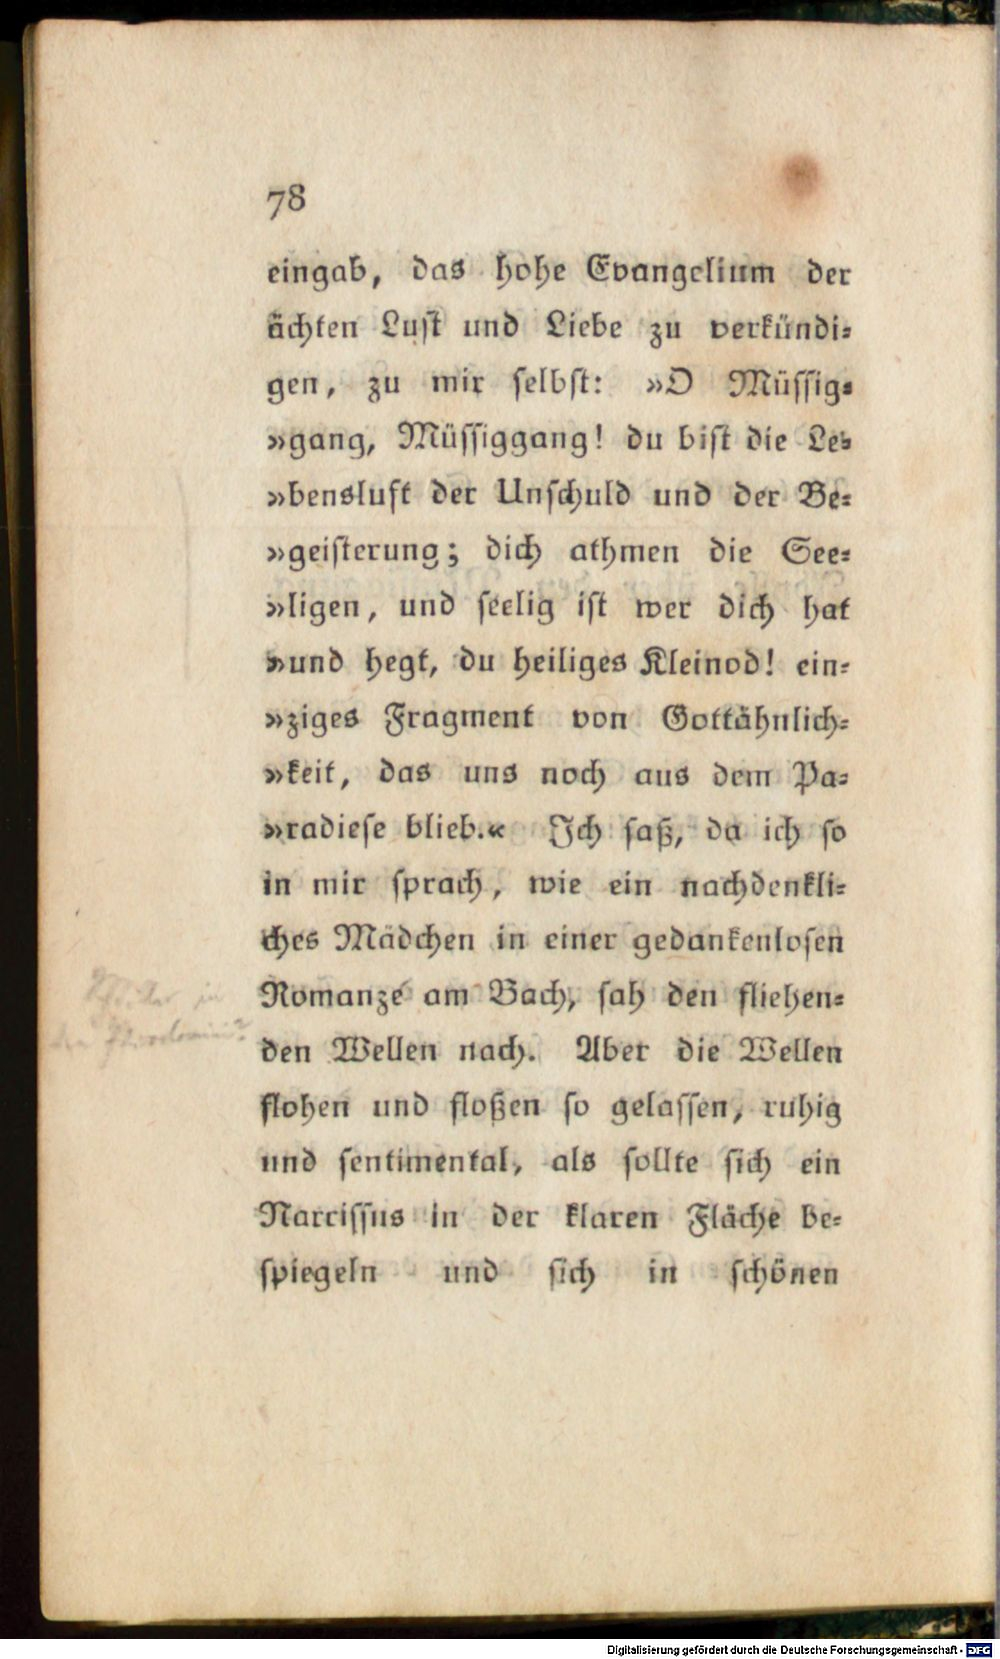 78
eingab, das hohe Evangelium der
ächten Lust und Liebe zu verkündi⸗
gen, zu mir selbst: »O Müssig⸗
»gang, Müssiggang! du bist die Le⸗
»bensluft der Unschuld und der Be⸗
»geisterung; dich athmen die See⸗
»ligen, und seelig ist wer dich hat
»und hegt, du heiliges Kleinod! ein⸗
»ziges Fragment von Gottähnlich⸗
»keit, das uns noch aus dem Pa⸗
»radiese blieb.« Ich saß, da ich so
in mir sprach, wie ein nachdenkli⸗
ches Mädchen in einer gedankenlosen
Romanze am Bach, sah den fliehen⸗
den Wellen nach. Aber die Wellen
flohen und floßen so gelassen, ruhig
und sentimental, als sollte sich ein
Narcissus in der klaren Fläche be⸗
spiegeln und sich in schönen
Digitalisierung gefördert durch die Deutsche Forschungsgemeinschaft - DFG